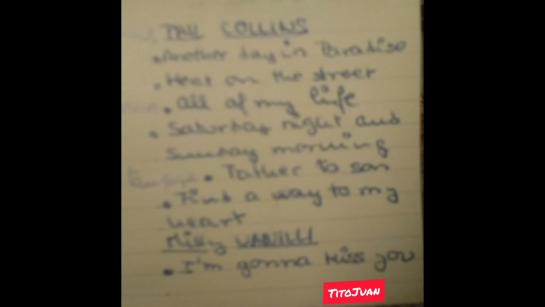 PHIL COLLINS
• Another day in Paradise
• Heat on the street
• all of my life
• Saturday night and
sunday morning
• Father to son
• Find a way to my
heart
Milly VANILLI
• I'm gonna Miss you
TITOJUAN